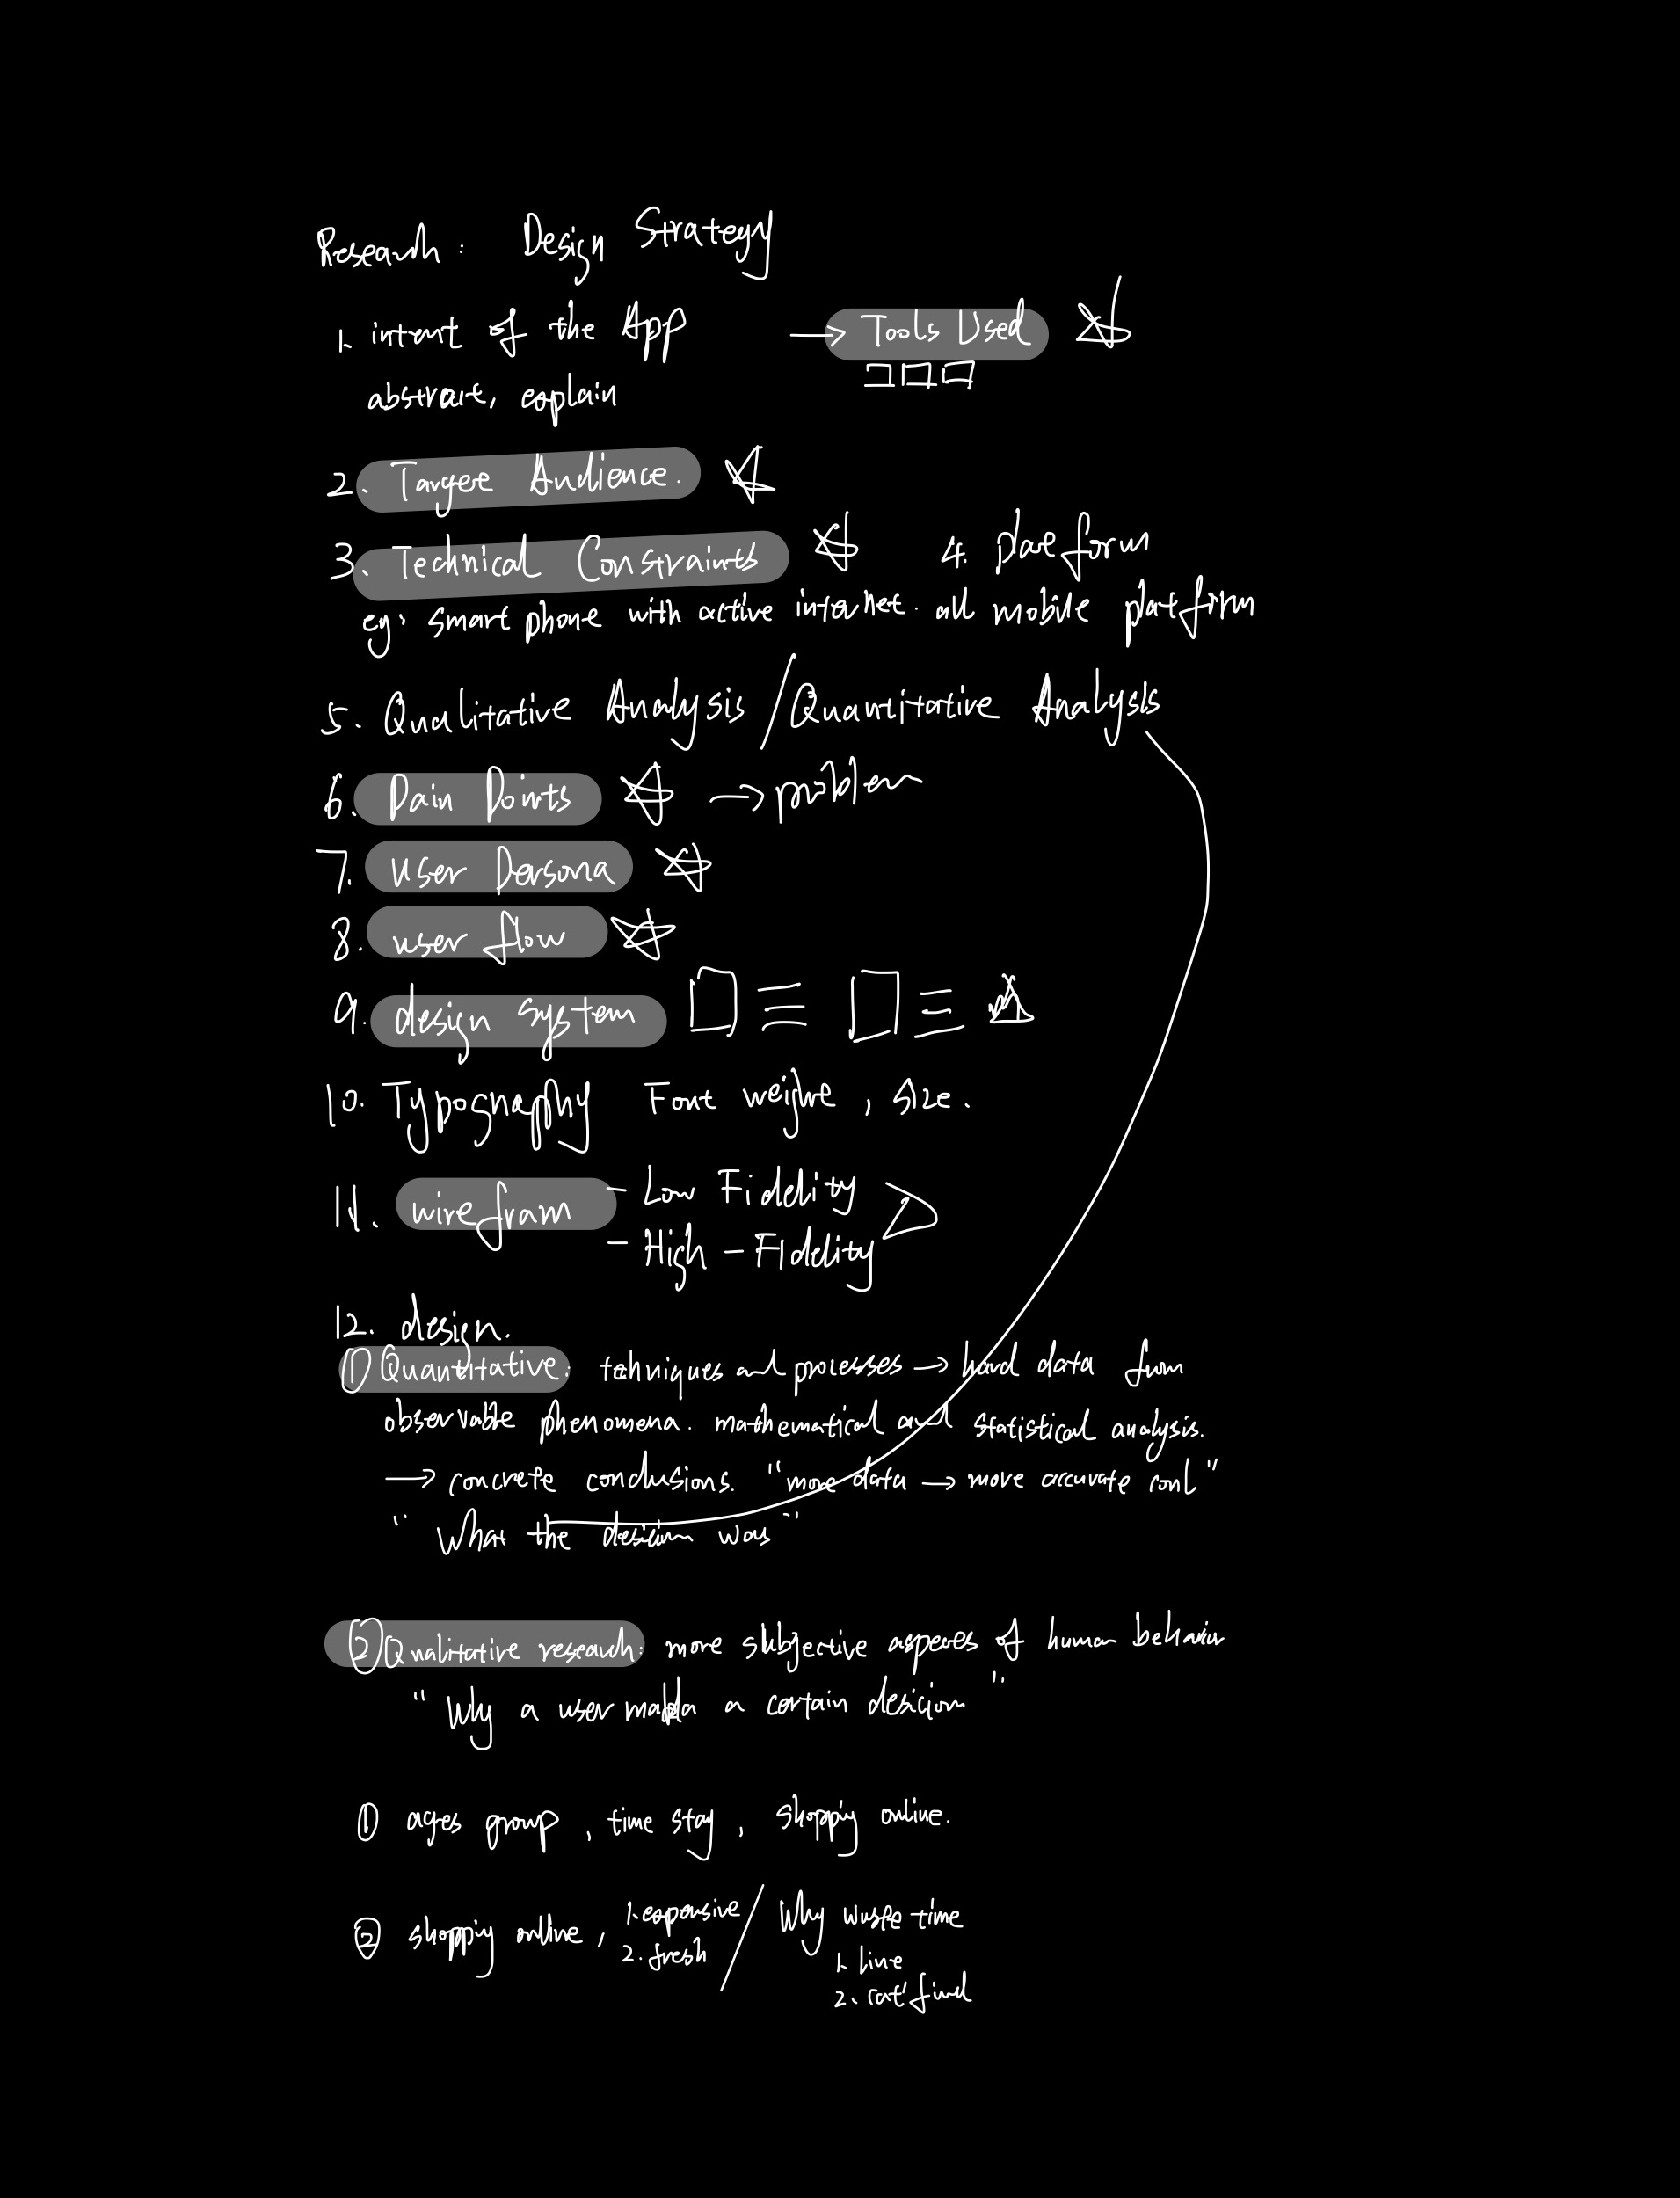 Research: Design Strategy
1. intent of the App → Tools Used
abstract, explain
2. Target Audience.
3. Technical Constraints 4. plateform
eg: smart phone with active internet. all mobile platform
5. Qualitative Analysis / Quantitative Analysis
6. Pain Points → problem
7. User Persona
8. user flow
9. design system
10. Typography Font weight, size.
11. wirefram - Low Fidelity
- High-Fidelity
12. design.
① Quantitative: tehniques and processes → hard data from
observable phenomena. mathematical and statistical analysis.
→ concrete conclusions. "more data → more accurate conl"
"What the was"
② Qualitative research: more subjective aspects of human behavior
"Why a user a certain desicion"
① ages group, time stay, shopping online.
② shopping online, 1. expensive / Why waste time
2. fresh 1. line
2. cat' find